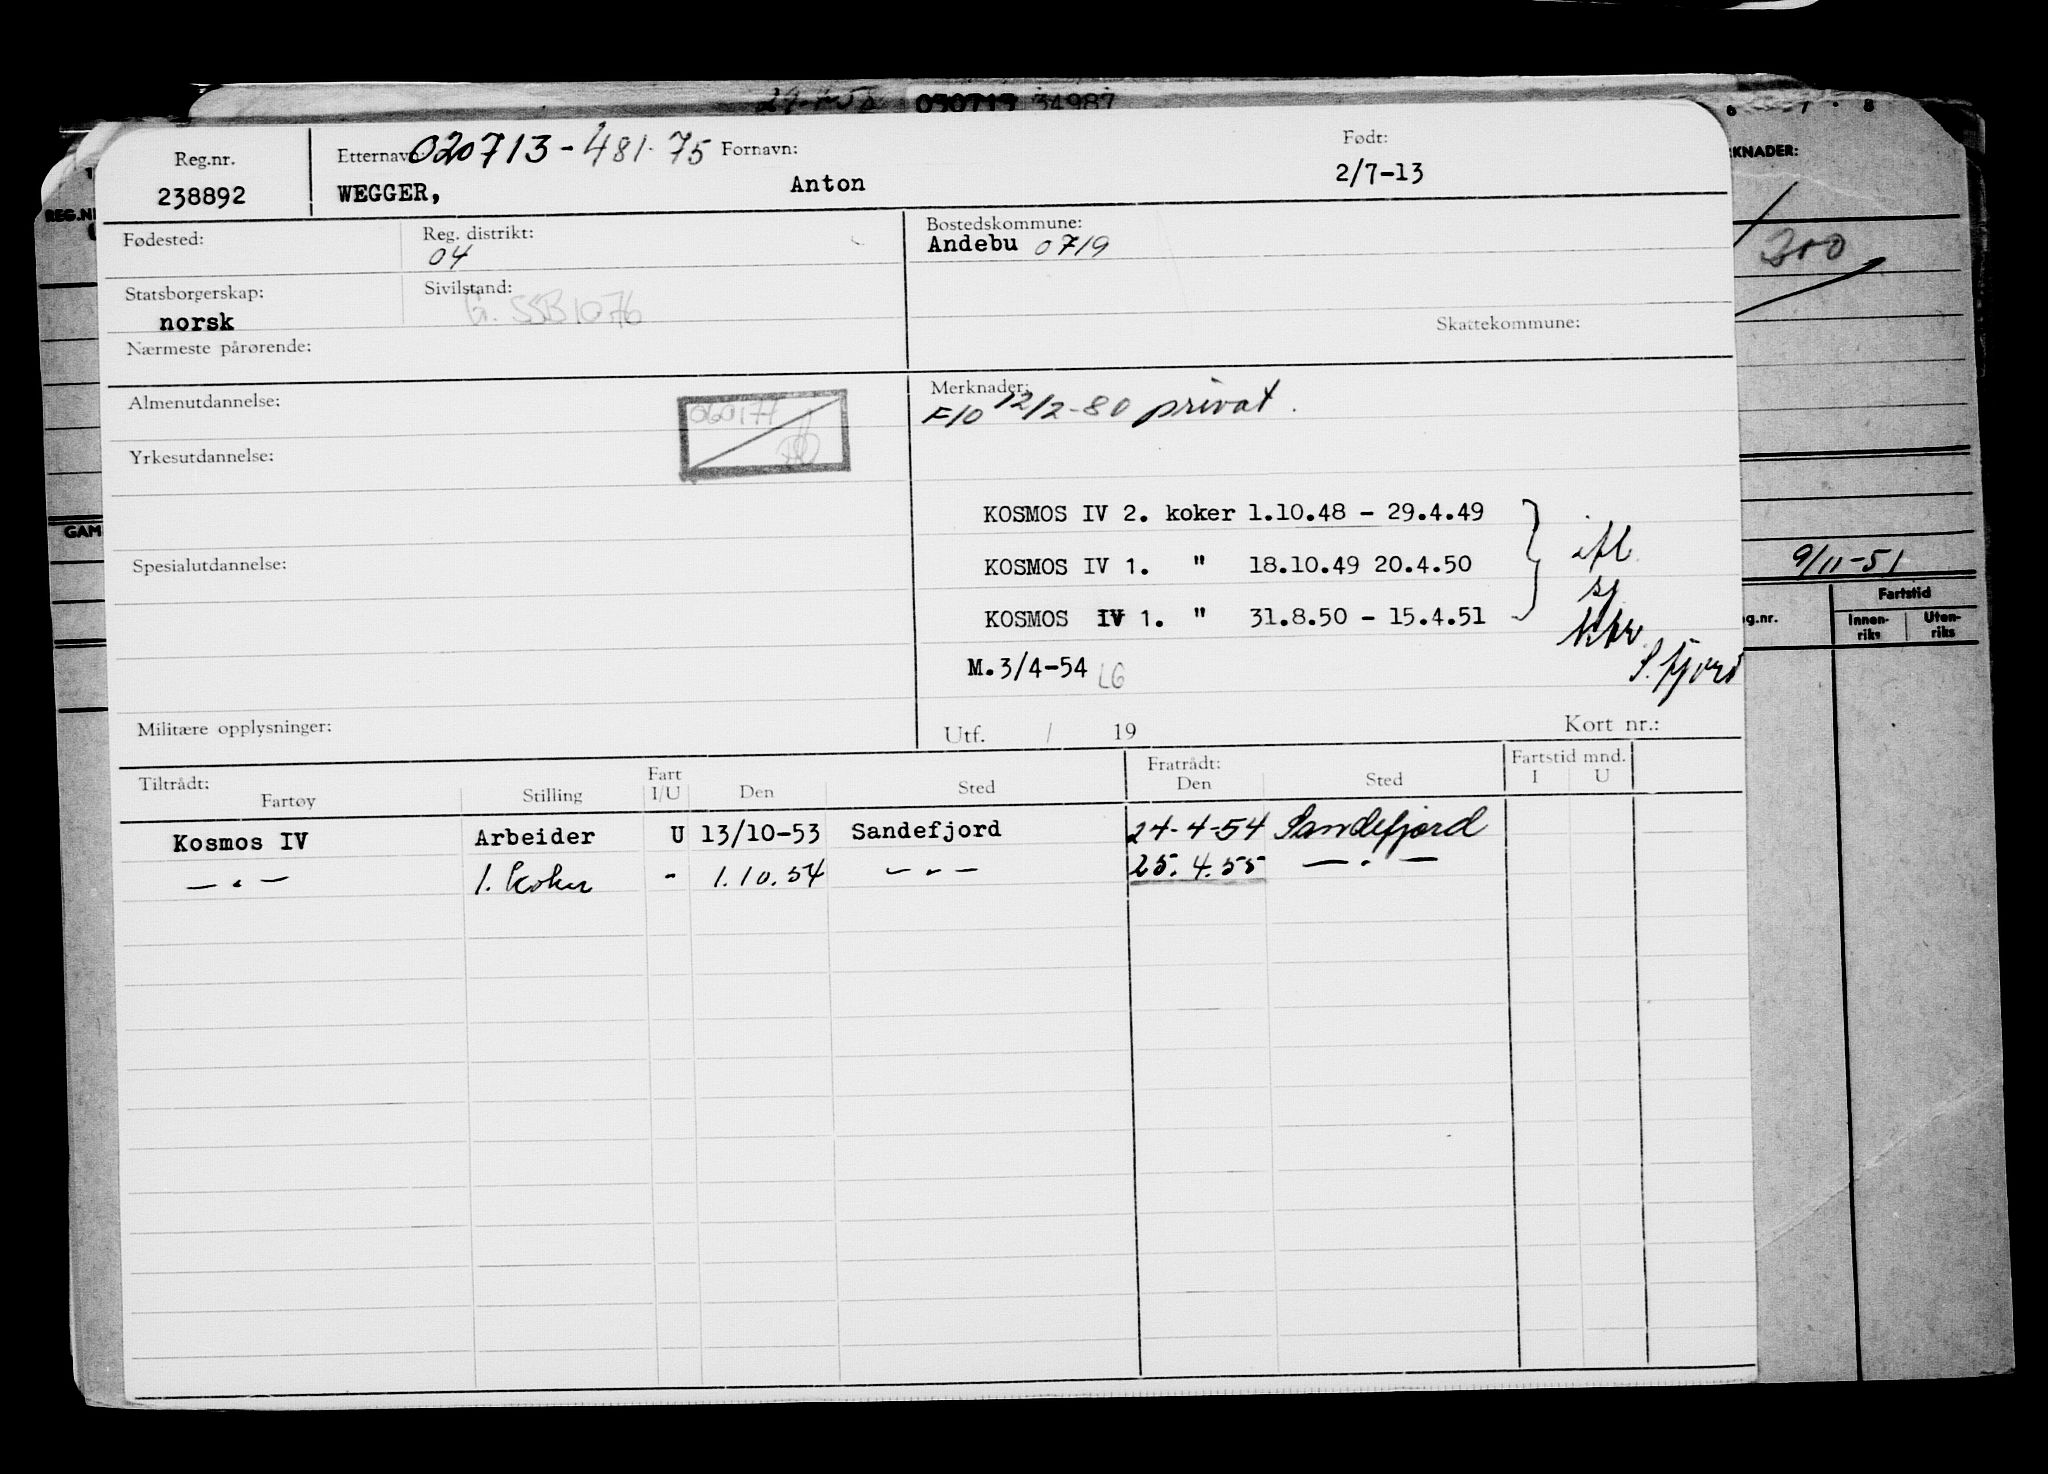 29-7-58 030713 34987
6 7 · 8
Reg.nr. Etternavn: 020713-481.75 Fornavn: Født:
238892 WEGGER, Anton 2/7-13
RKNADER:
REG.NR
Fødested: Reg. distrikt: Bostedskommune:
04 Andebu 0719
300
Statsborgerskap: Sivilstand:
norsk G. SSB 1076
Skattekommune:
Nærmeste pårørende:
Almenutdannelse: Merknader:
060177 F/O 12/2-80 privat.
Yrkesutdannelse:
KOSMOS IV 2. koker 1.10.48 - 29.4.49
GAM
Spesialutdannelse: KOSMOS IV 1. " 18.10.49 20.4.50 ifl.
9/11-51
sj.
Fartstid
KOSMOS IV 1. " 31.8.50 - 15.4.51
g.nr. Innen-riks Uten-riks
M.3/4-54 LG S.fjord
Militære opplysninger: Utf. / 19 Kort nr.:
Tiltrådt: Fratrådt: Fartstid mnd.
Fartøy Stilling Fart I/U Den Sted Den Sted I U
Kosmos IV Arbeider U 13/10-53 Sandefjord 24-4-54 Sandefjord
— " — 1. koker - 1.10.54 — " — 25.4.55 — " —